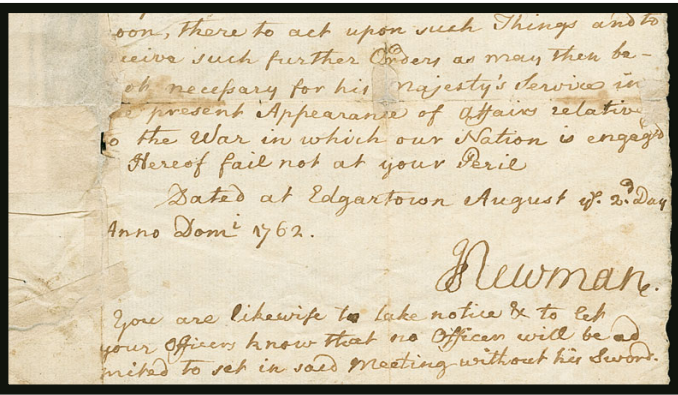 oon, there to act upon such Things and to
ceive such further Orders as may then be-
necessary for his Majesty's Service in
e present Appearance of Affairs relative
o the War in which our Nation is engag'd
Hereof fail not at your Peril
Dated at Edgartown August ye. 2d. Day
Anno Domi 1762.
JNewman.
You are likewise to take notice & to let
your Officers know that no Officer will be ad
mited to set in said Meeting without his Sword.